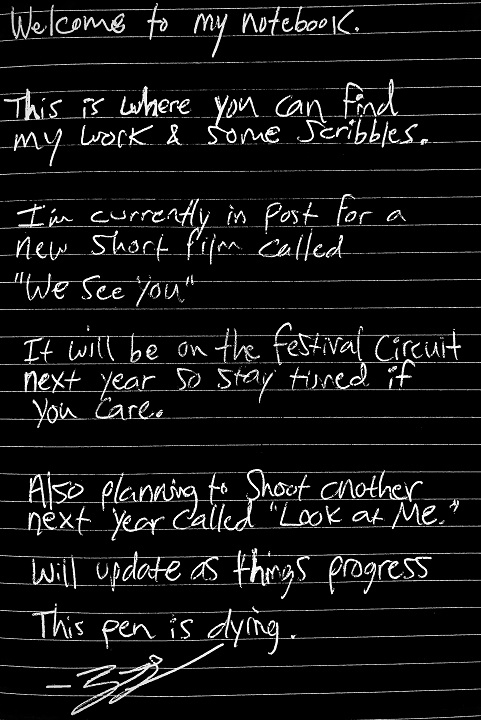 Welcome to my notebook.
This is where you can find
my work & some scribbles.
I'm currently in post for a
new short film called
"We see you"
It will be on the festival circuit
next year so stay tuned if
you care.
Also planning to shoot another
next year called "Look at Me."
Will update as things progress
This pen is dying.